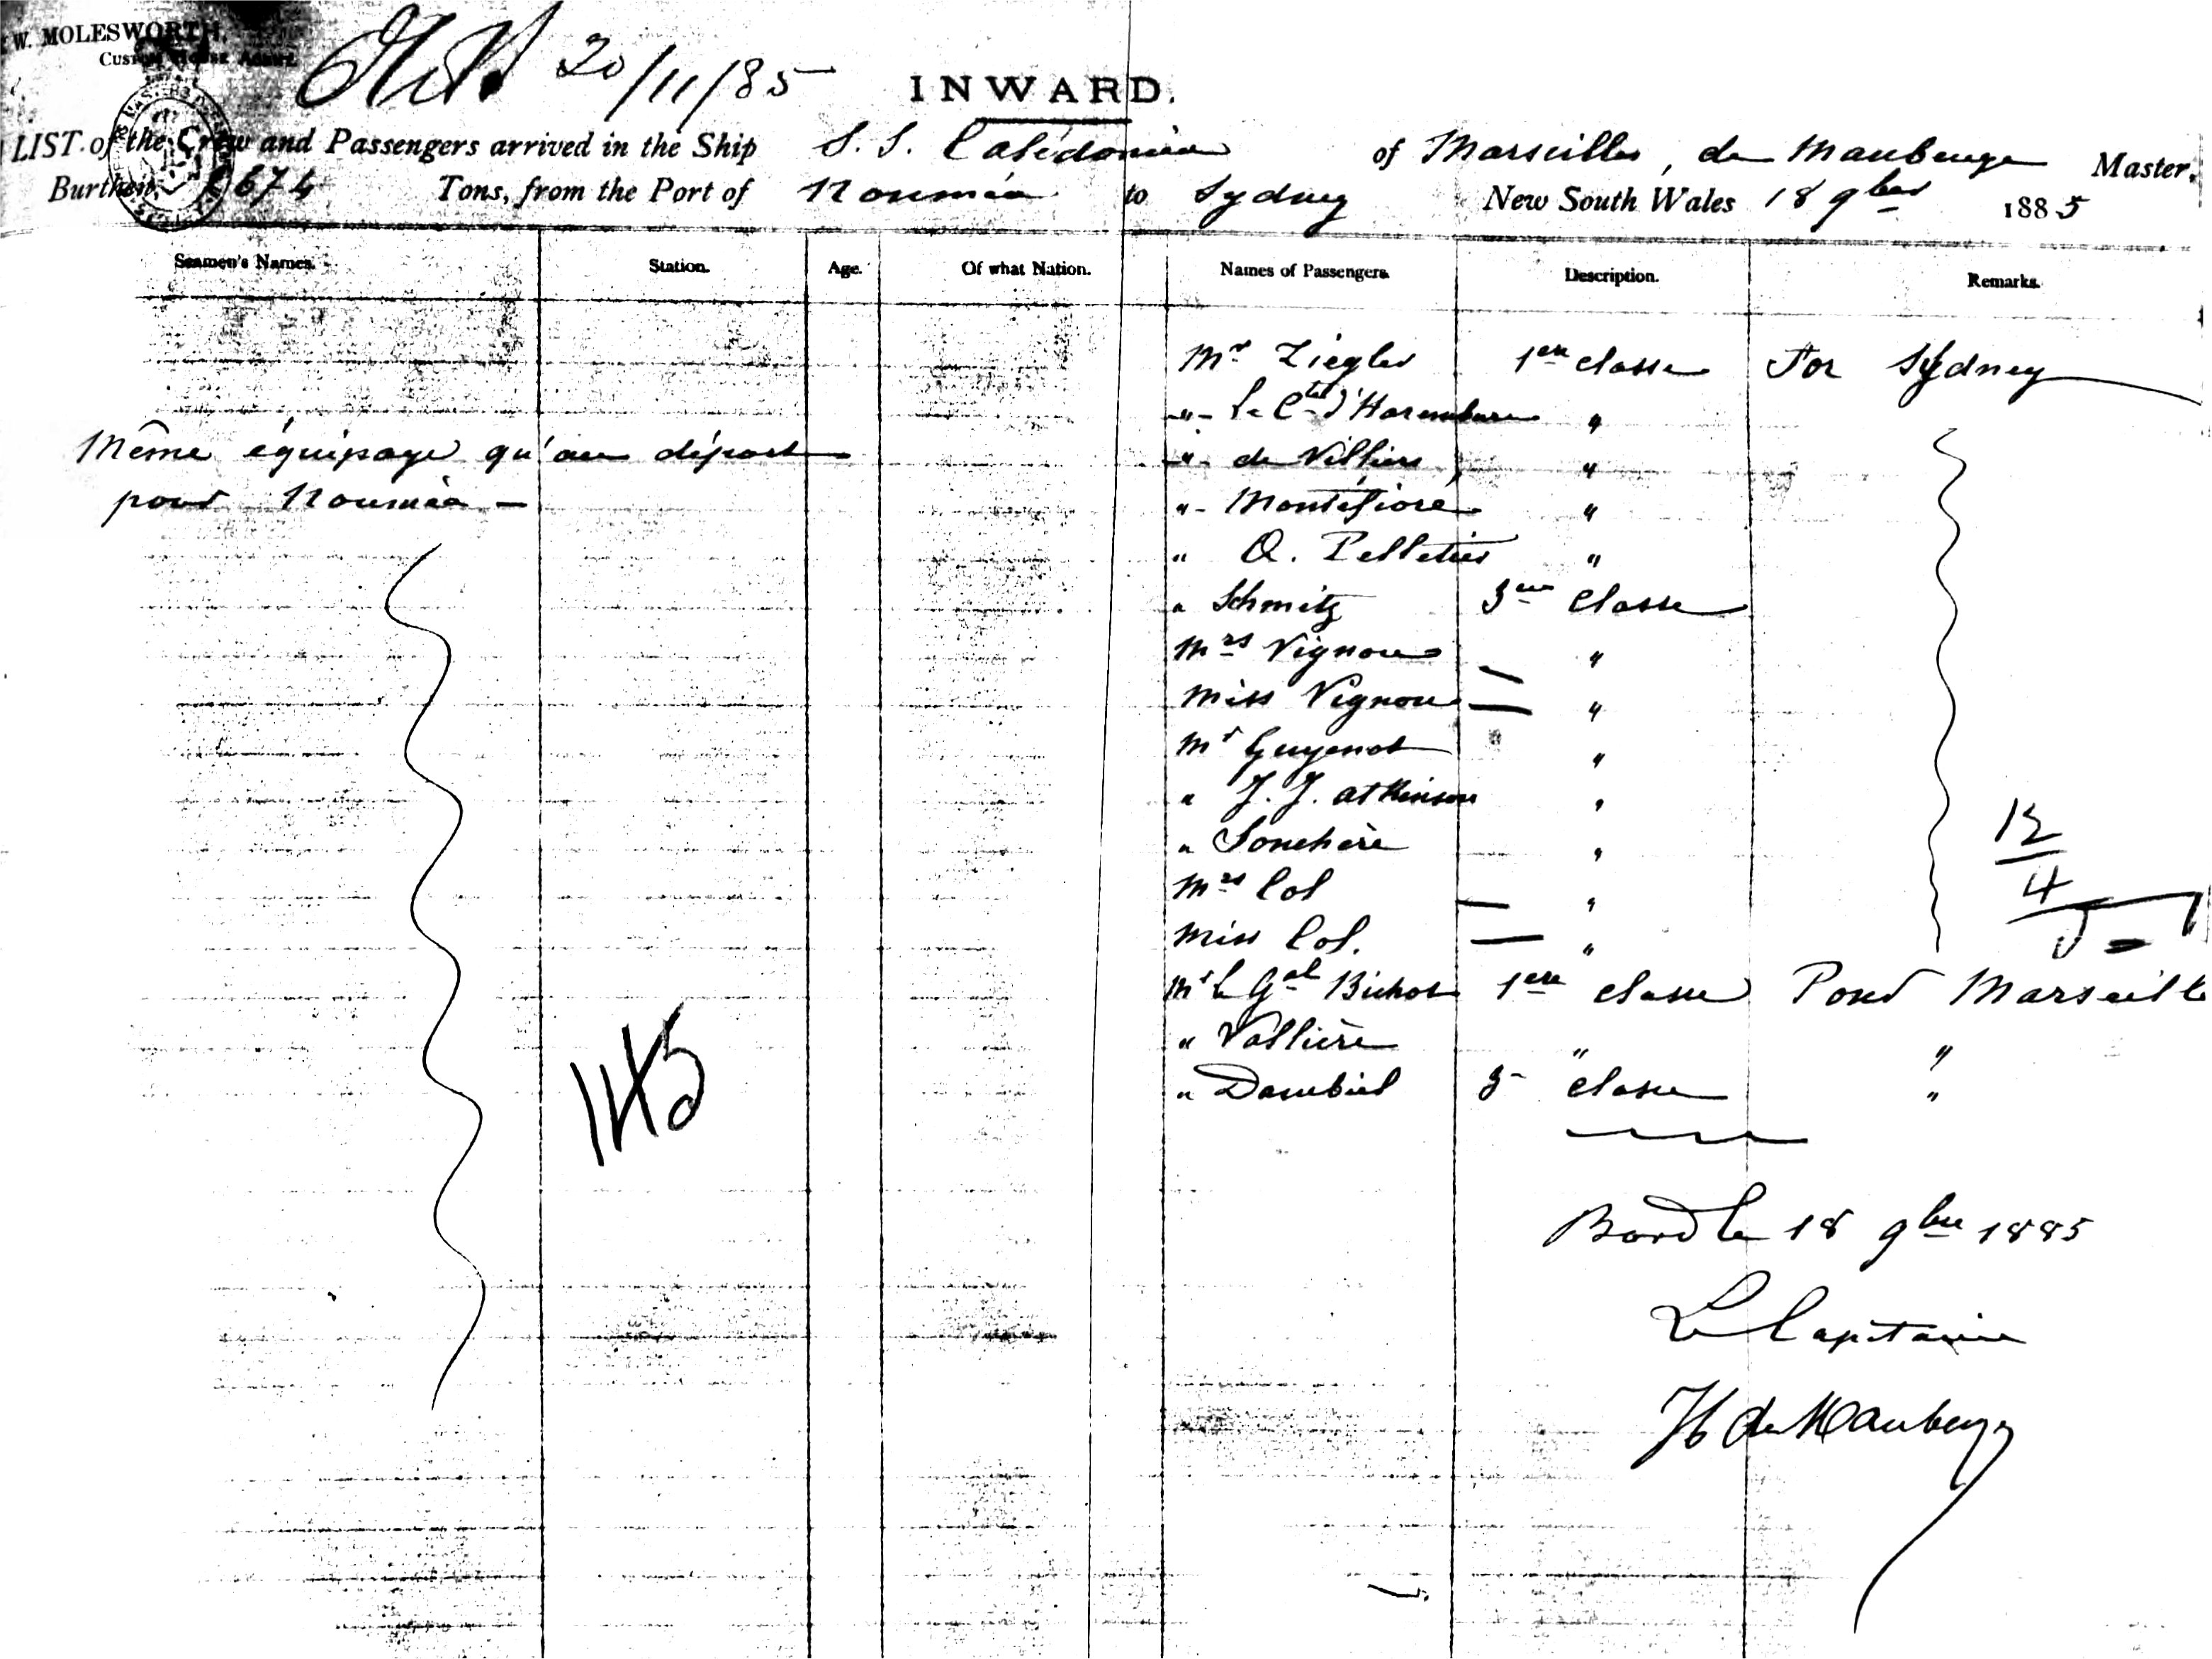 W. MOLESWORTH,
Custom House Agent.
20/11/85
INWARD.
LIST of the Crew and Passengers arrived in the Ship S. S. Calédonien of Marseilles, de Maubeuge Master,
Burthen, 2674 Tons, from the Port of Nouméa to Sydney New South Wales 18 9bre 1885
Seamen's Names. Station. Age. Of what Nation. Names of Passengers. Description. Remarks.
Mr Ziegler 1ere classe For Sydney
"- Le Ctal d'Harembure "
Même équipage qu'au départ
"- de Villiers "
pour Nouméa -
"- Montéfiore "
" O. Pelletier "
" Schmitz 3me classe
Mrs Vignou "
Miss Vignou "
Mr Guyenot "
" J. J. Atkinson "
" Souchère "
12
Mrs Col "
4
Miss Col. "
Mr le Gal Bichot 1ere classe Pour Marseille
" Vallière " "
" Dambiel 3- classe "
145
Bord le 18 9bre 1885
Le Capitaine
H de Maubeuge